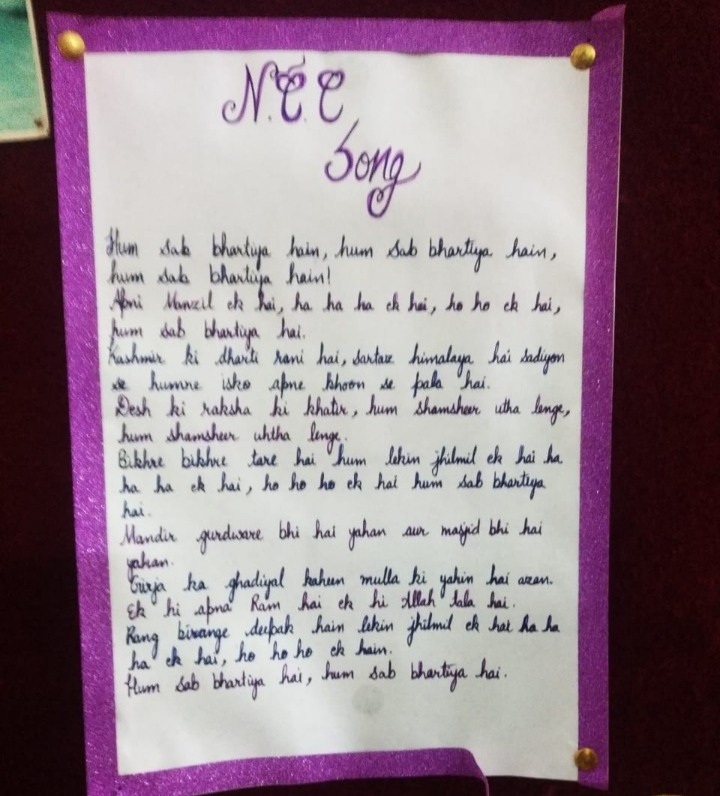 N.C.C
Song
Hum sab bhartiya hain, hum sab bhartiya hain,
hum sab bhartiya hain!
Apni Manzil ek hai, ha ha ha ek hai, ho ho ek hai,
hum sab bhartiya hai.
Kashmir ki dharti rani hai, sartaz himalaya hai sadiyon
se humne isko apne khoon se pala hai.
Desh ki raksha ki khatir, hum shamsheer utha lenge,
hum shamsheer uhtha lenge.
Bikhre bikhre tare hai hum lekin jhilmil ek hai ha
ha ha ek hai, ho ho ho ek hai hum sab bhartiya
hai.
Mandir gurdware bhi hai yahan aur masjid bhi hai
yahan.
Girja ka ghadiyal kaheen mulla ki yahin hai azan.
Ek hi apna Ram hai ek hi Allah tala hai.
Rang birange deepak hain lekin jhilmil ek hai ha ha
ha ek hai, ho ho ho ek hain.
Hum sab bhartiya hai, hum sab bhartiya hai.